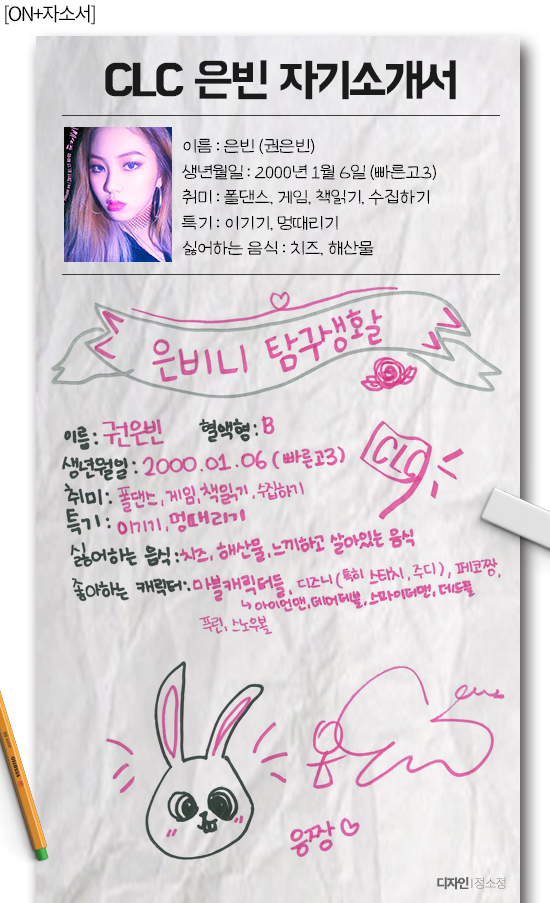 [ON+자소서]
CLC 은빈 자기소개서
이름 : 은빈 (권은빈)
생년월일 : 2000년 1월 6일 (빠른고3)
취미 : 폴댄스, 게임, 책읽기, 수집하기
특기 : 이기기, 멍때리기
싫어하는 음식 : 치즈, 해산물
은비니 탐구생활
이름 : 권은빈 혈액형 : B
CLC
생년월일 : 2000.01.06 (빠른고3)
취미 : 폴댄스, 게임, 책읽기, 수집하기
특기 : 이기기, 멍때리기
싫어하는 음식 : 치즈, 해산물, 느끼하고 살아있는 음식
좋아하는 캐릭터 : 마블캐릭터들, 디즈니 (특히 스티치, 주디), 페코짱,
↳ 아이언맨, 데어데블, 스파이더맨, 데드풀
푸린, 스노우볼
응짱 ♡
디자인 | 정소정